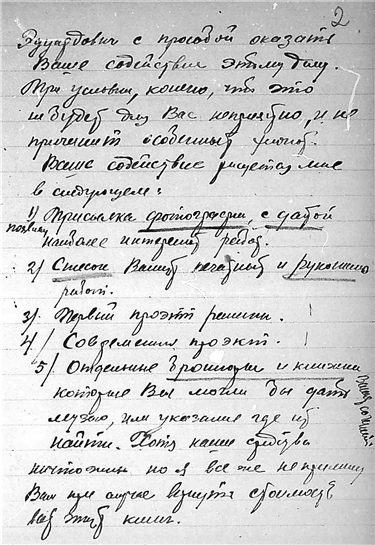 2
Эдуардович с просьбой оказать
Ваше содействие этому делу.
При условии, конечно, что это
не будет для Вас неприятно, и не
причинит особенных хлопот.
Ваше содействие рисуется мне
в следующем:
1) Присылка фотографии, с датой
наиболее интересных работ.
2) Список Ваших печатных и рукописных
работ.
3) Первый проэкт
4) Современный проэкт.
5) Отдельные брошюры и книжки
которые Вы могли бы дать
музею, или указание где их
найти. Хотя наши средства
ничтожны но я все же не премину
Вам при случае вернуть стоимость
всех этих книг.